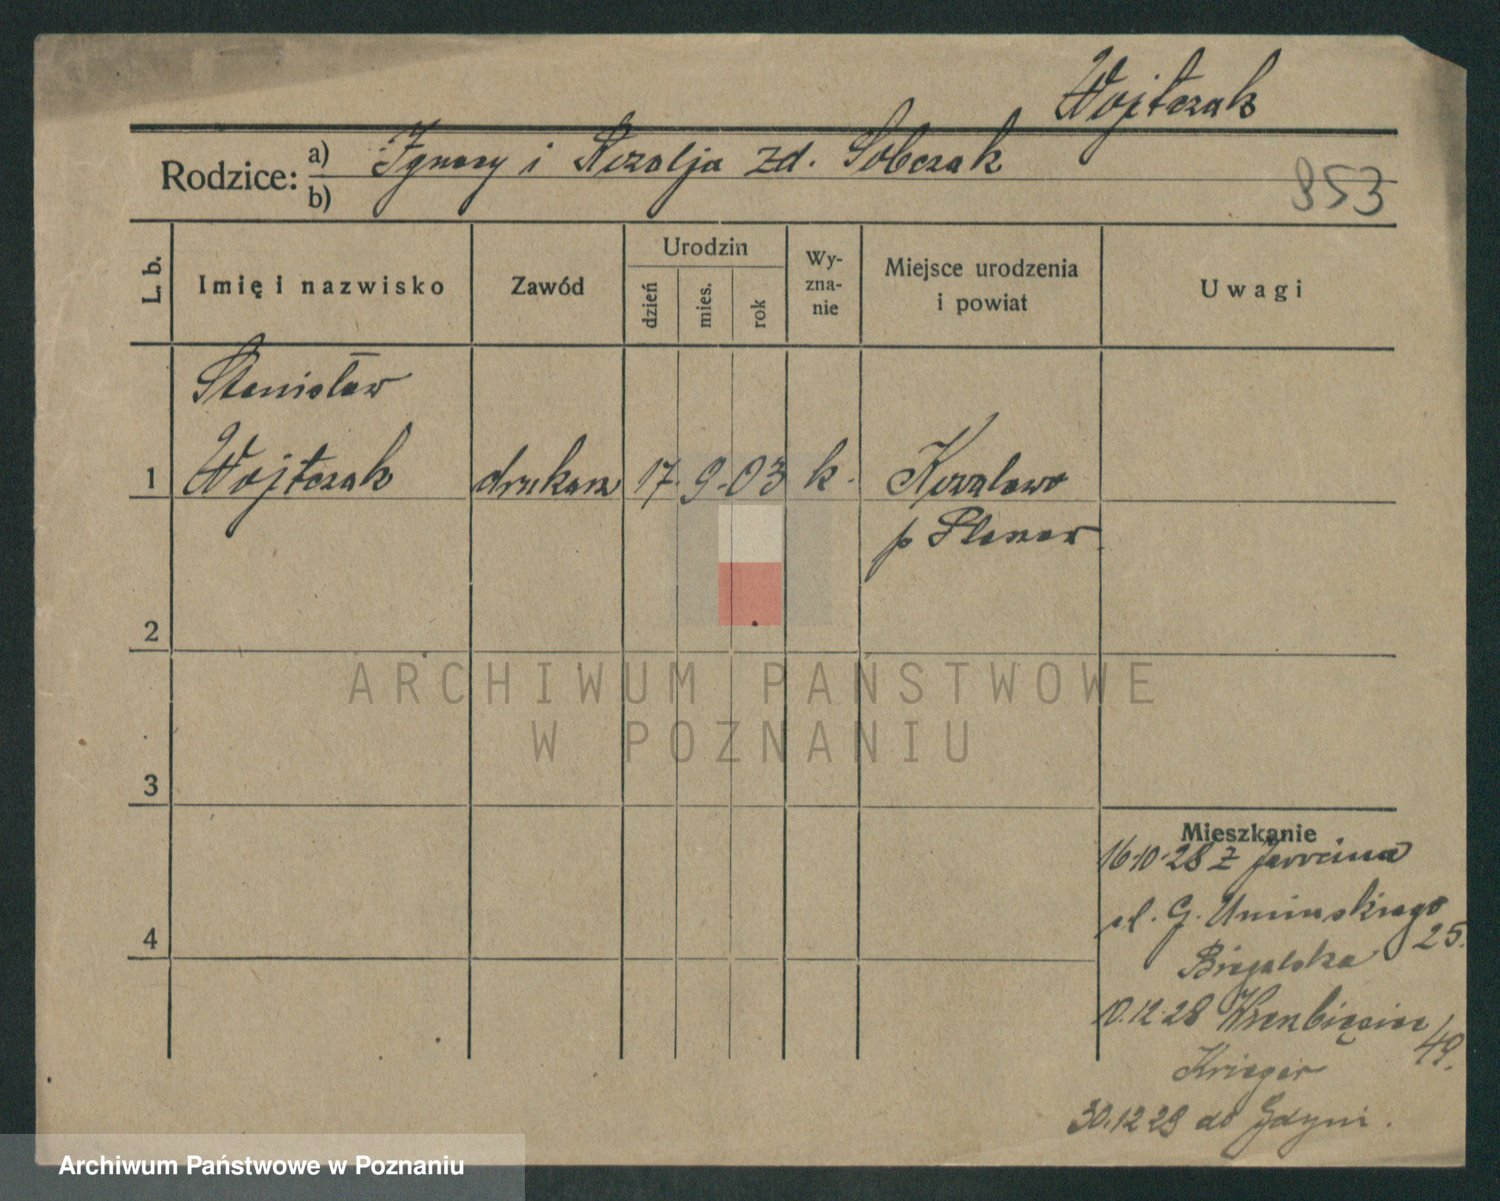 Wojtczak
Rodzice: a) Ignacy i Rozalja zd. Sobczak
b)
953
L. b.
Imię i nazwisko
Zawód
Urodzin
dzień
mies.
rok
Wy-
zna-
nie
Miejsce urodzenia
i powiat
Uwagi
Stanisław
1 Wojtczak drukarz 17. 9. 03 k.
p
2
3
4
Mieszkanie
16.10.28 z Jarocina
ul. G. Umińskiego
25.
Biegalska
10.12.28
49.
Krieger
30.12.29 do Gdyni.
ARCHIWUM PAŃSTWOWE
W POZNANIU
Archiwum Państwowe w Poznaniu